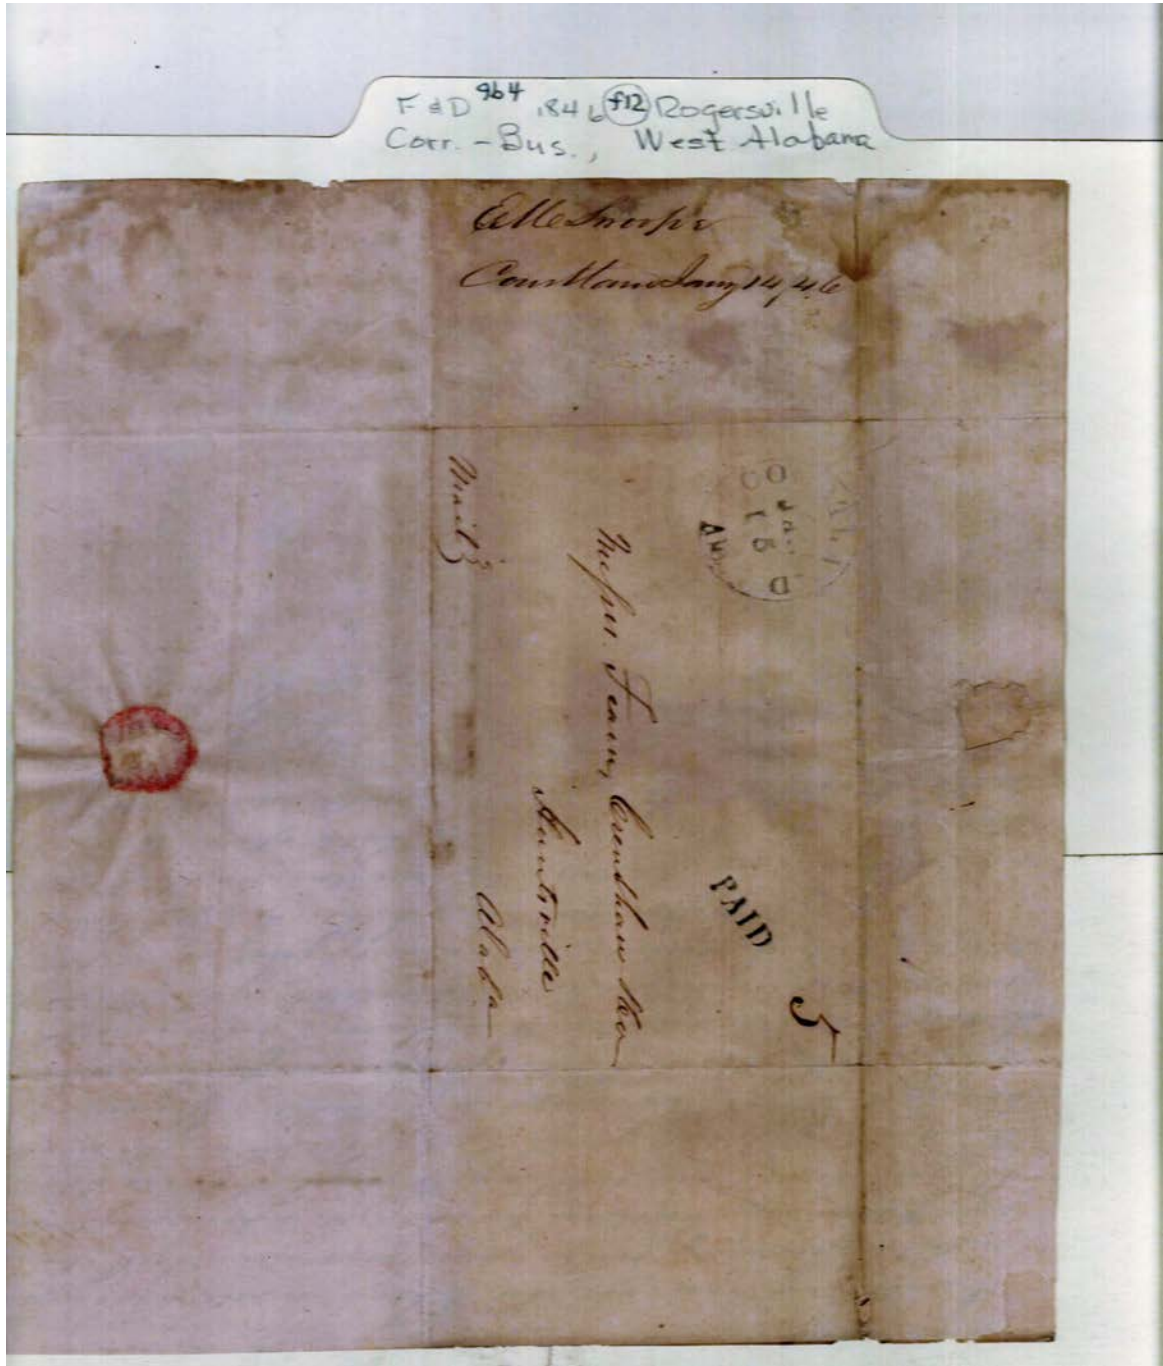 F & D 964 1846 f12 Rogersville
Corr. - Bus., West Alabama
Thorpe
Courtland Jany 14, 46
Mail
Messrs. Fearn, Crenshaw & Co
Huntsville
Alaba
JAN
15
PAID
5